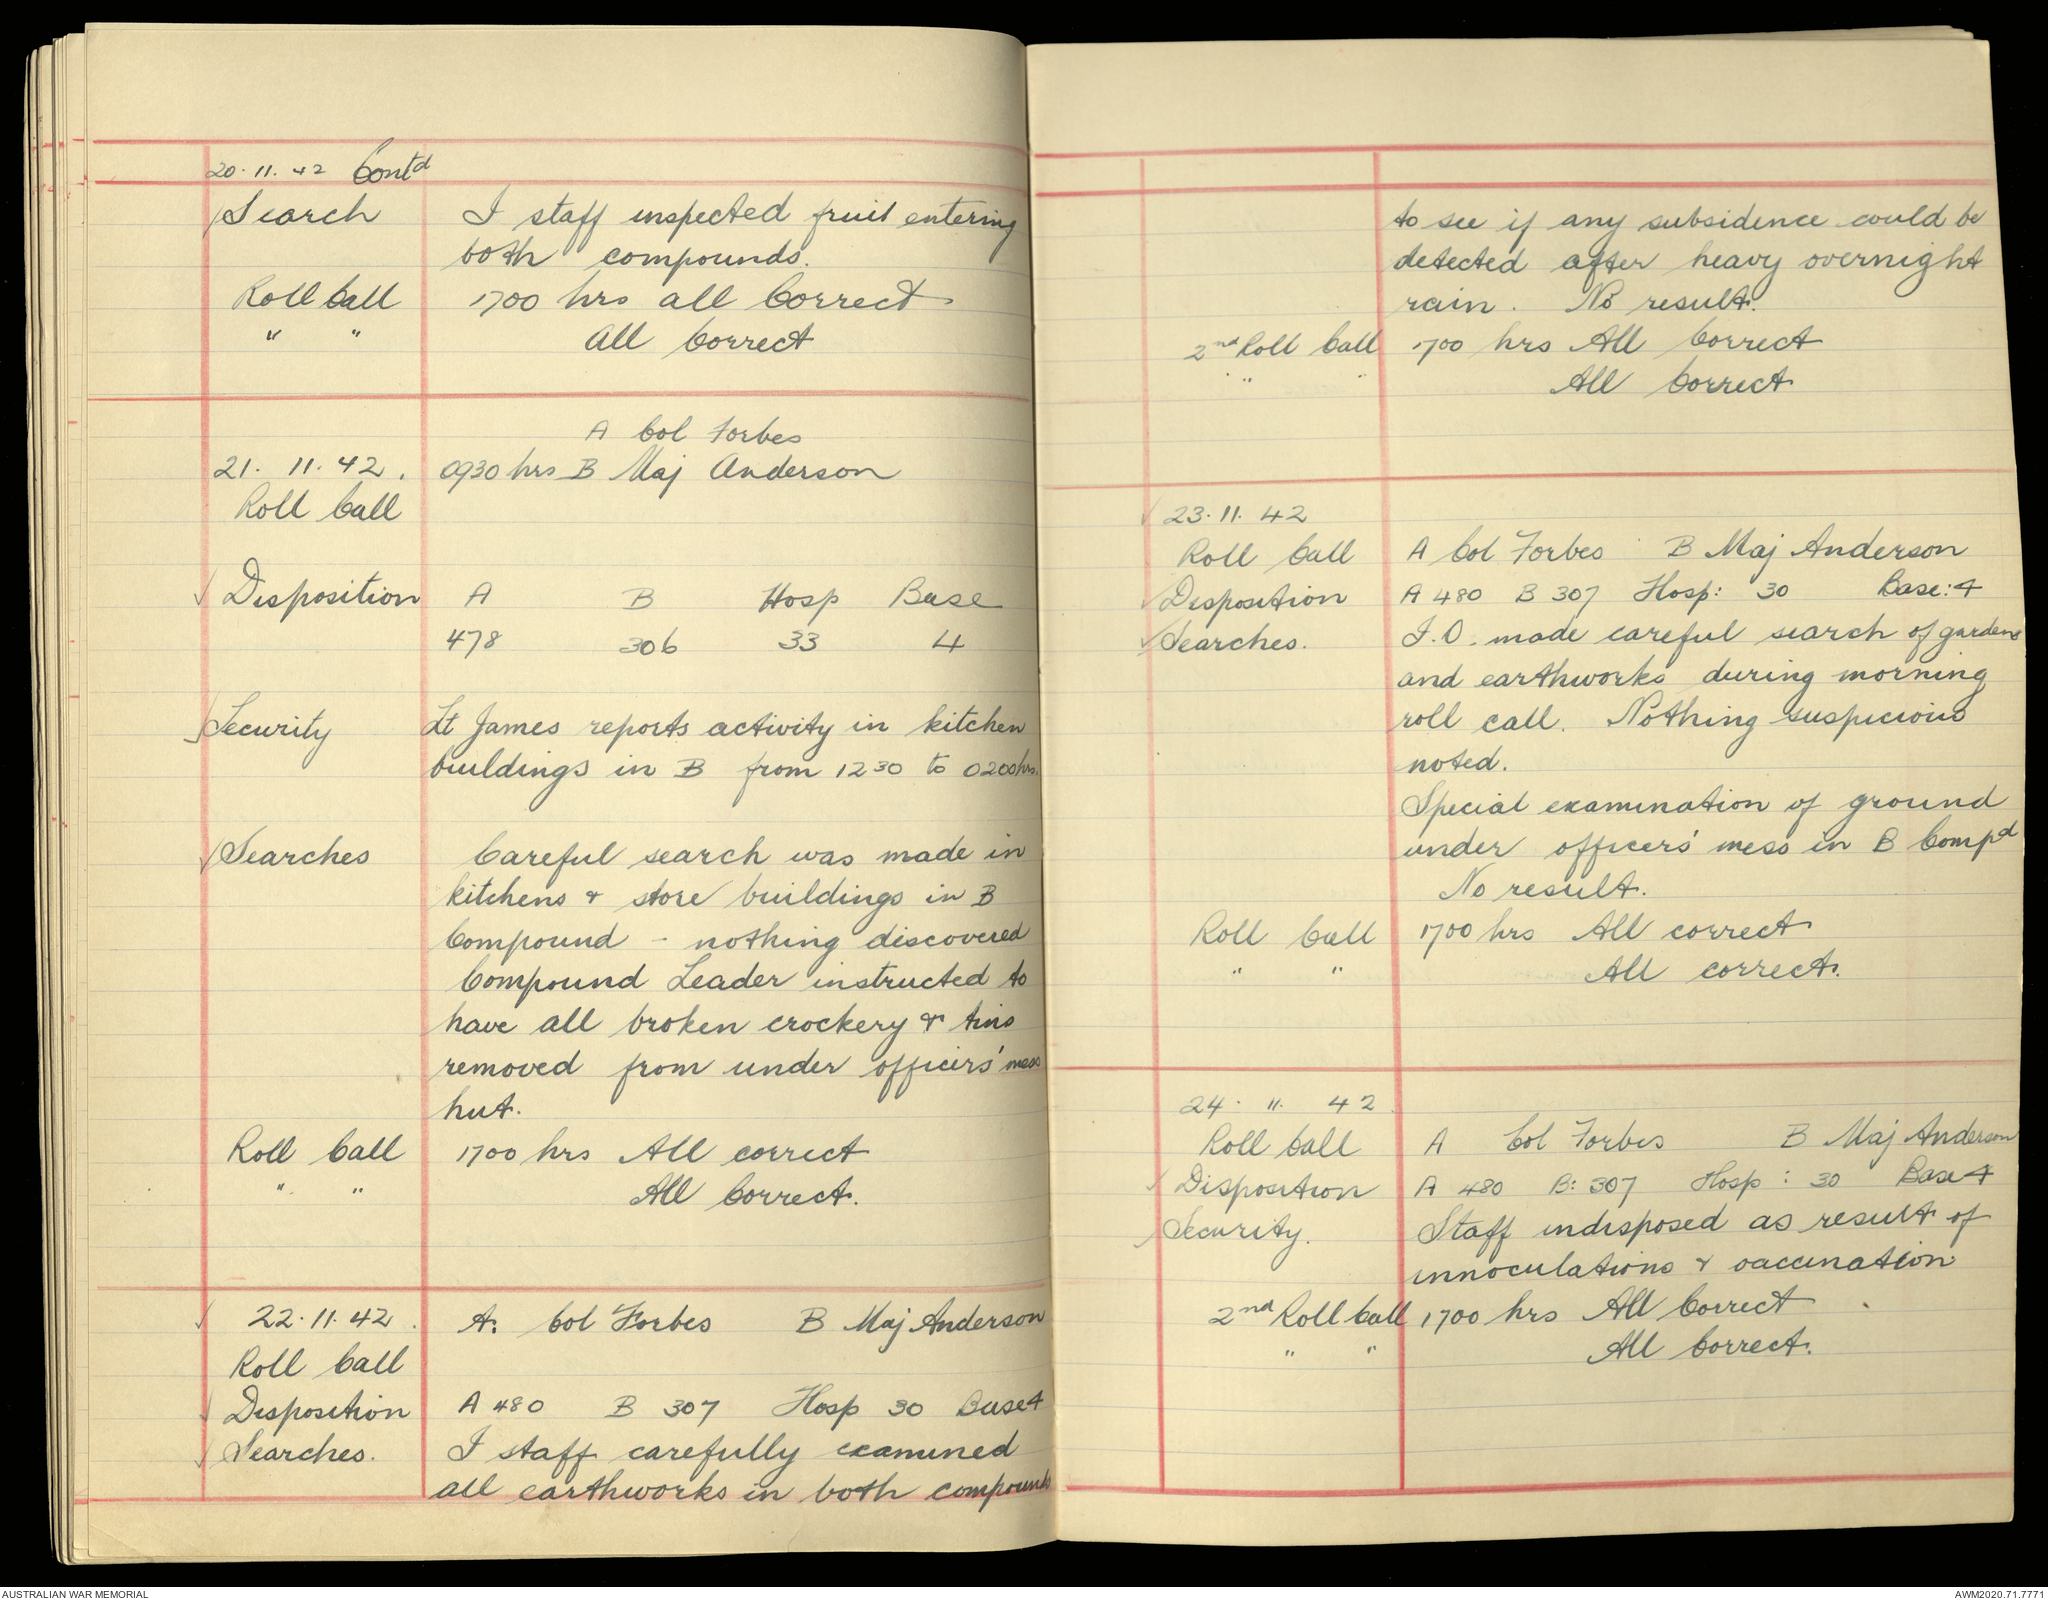 20.11.42 Contd
Search I staff inspected fruit entering
both compounds.
Roll Call 1700 hrs all Correct
" " All Correct
A Col Forbes
21. 11. 42. 0930 hrs B Maj Anderson
Roll Call
Disposition A B Hosp Base
478 306 33 4
Security Lt James reports activity in kitchen
buildings in B from 1230 to 0200 hrs.
Searches Careful search was made in
kitchens & store buildings in B
Compound - nothing discovered
Compound Leader instructed to
have all broken crockery & tins
removed from under officers' mess
hut.
Roll Call 1700 hrs All correct
" " All Correct.
22.11.42. A: Col Forbes B Maj Anderson
Roll Call
Disposition A 480 B 307 Hosp 30 Base 4
Searches. I staff carefully examined
all earthworks in both compounds
to see if any subsidence could be
detected after heavy overnight
rain. No result.
2nd Roll Call 1700 hrs All Correct
" " All Correct
23.11.42
Roll Call A Col Forbes B Maj Anderson
Disposition A 480 B 307 Hosp: 30 Base: 4
Searches. I.O. made careful search of gardens
and earthworks during morning
roll call. Nothing suspicious
noted.
Special examination of ground
under officers' mess in B Compd
No result.
Roll Call 1700 hrs All correct
" " All correct.
24. 11. 42
Roll Call A Col Forbes B Maj Anderson
Disposition A 480 B: 307 Hosp: 30 Base 4
Security. Staff indisposed as result of
innoculations & vaccination
2nd Roll Call 1700 hrs All Correct
" " All Correct.
AUSTRALIAN WAR MEMORIAL AWM2020.71.7771